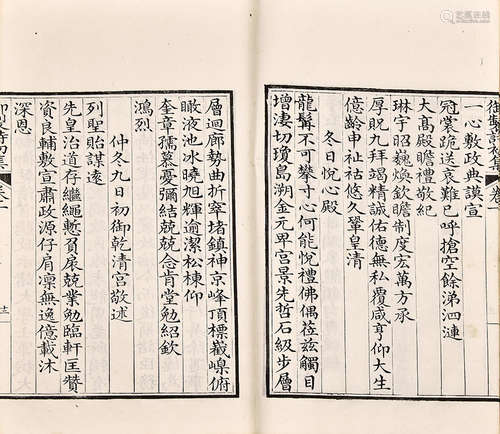 一心敷政典謨宣
冠裳跪送哀難已呼搶空餘涕泗漣
大高殿瞻禮敬紀
琳宇昭巍煥欽瞻制度宏萬方承
厚貺九拜竭精誠佑德無私覆咸亨仰大生
億齡申祉祜悠久鞏皇清
冬日悅心殿
龍髯不可攀寸心何能悅禮佛偶莅茲觸目
增淒切瓊島朔金元卑宮景先哲石級步層
層迴廊勢曲折窣堵鎮神京峰頂標巀嵲俯
瞰液池冰曉旭輝逾潔松棟仰
奎章孺慕彌結兢兢念肯堂勉紹欽
鴻烈
仲冬九日初御乾清宮敬述
列聖貽謀遠
先皇治道存繼繩慙負扆兢業勉臨軒匡贊
資良輔敷宣肅政源仔肩凛無逸億載沐
深恩